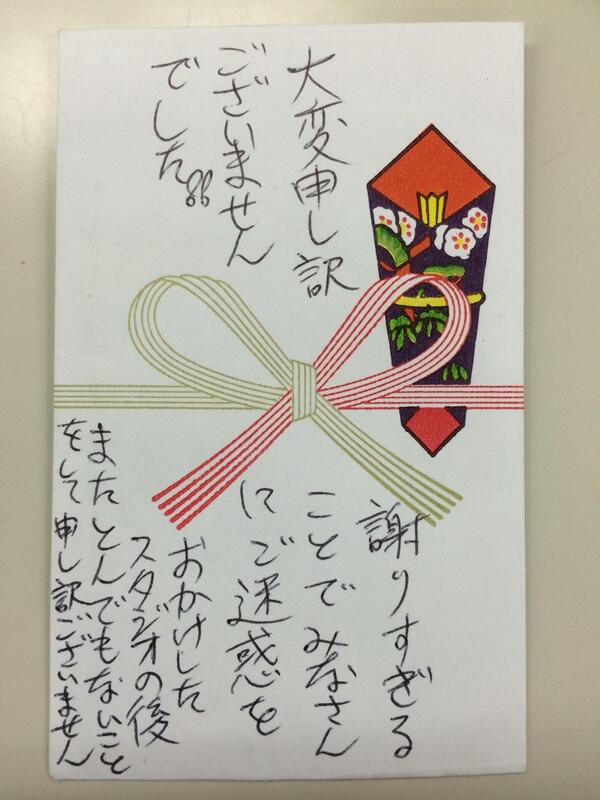 大変申し訳
ございません
でした!!
謝りすぎる
ことでみなさん
にご迷惑を
おかけした
スタジオの後
またとんでもないこと
をして申し訳ございません